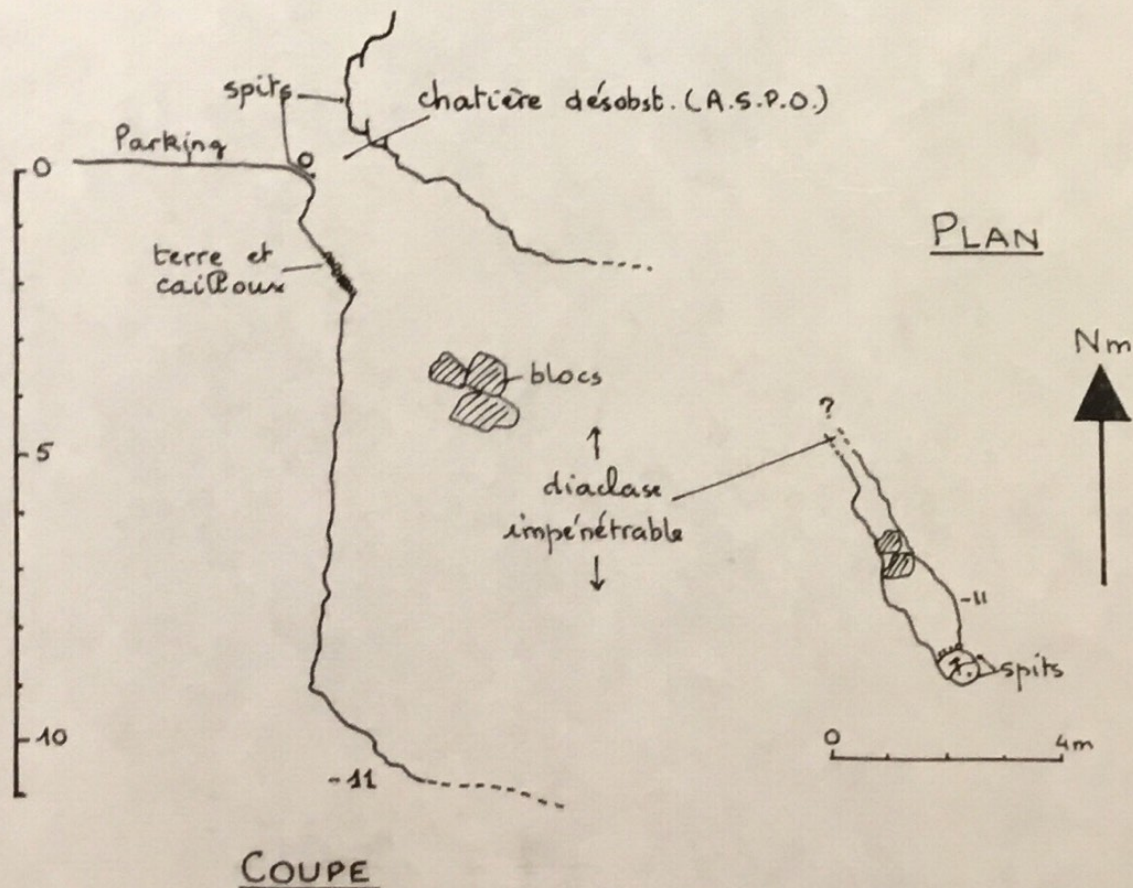 spits
chatière désobst. (A.S.P.O.)
Parking
0
terre et
cailloux
PLAN
Nm
blocs
5
?
diaclase
impénétrable
-11
spits
10
0 4m
-11
COUPE